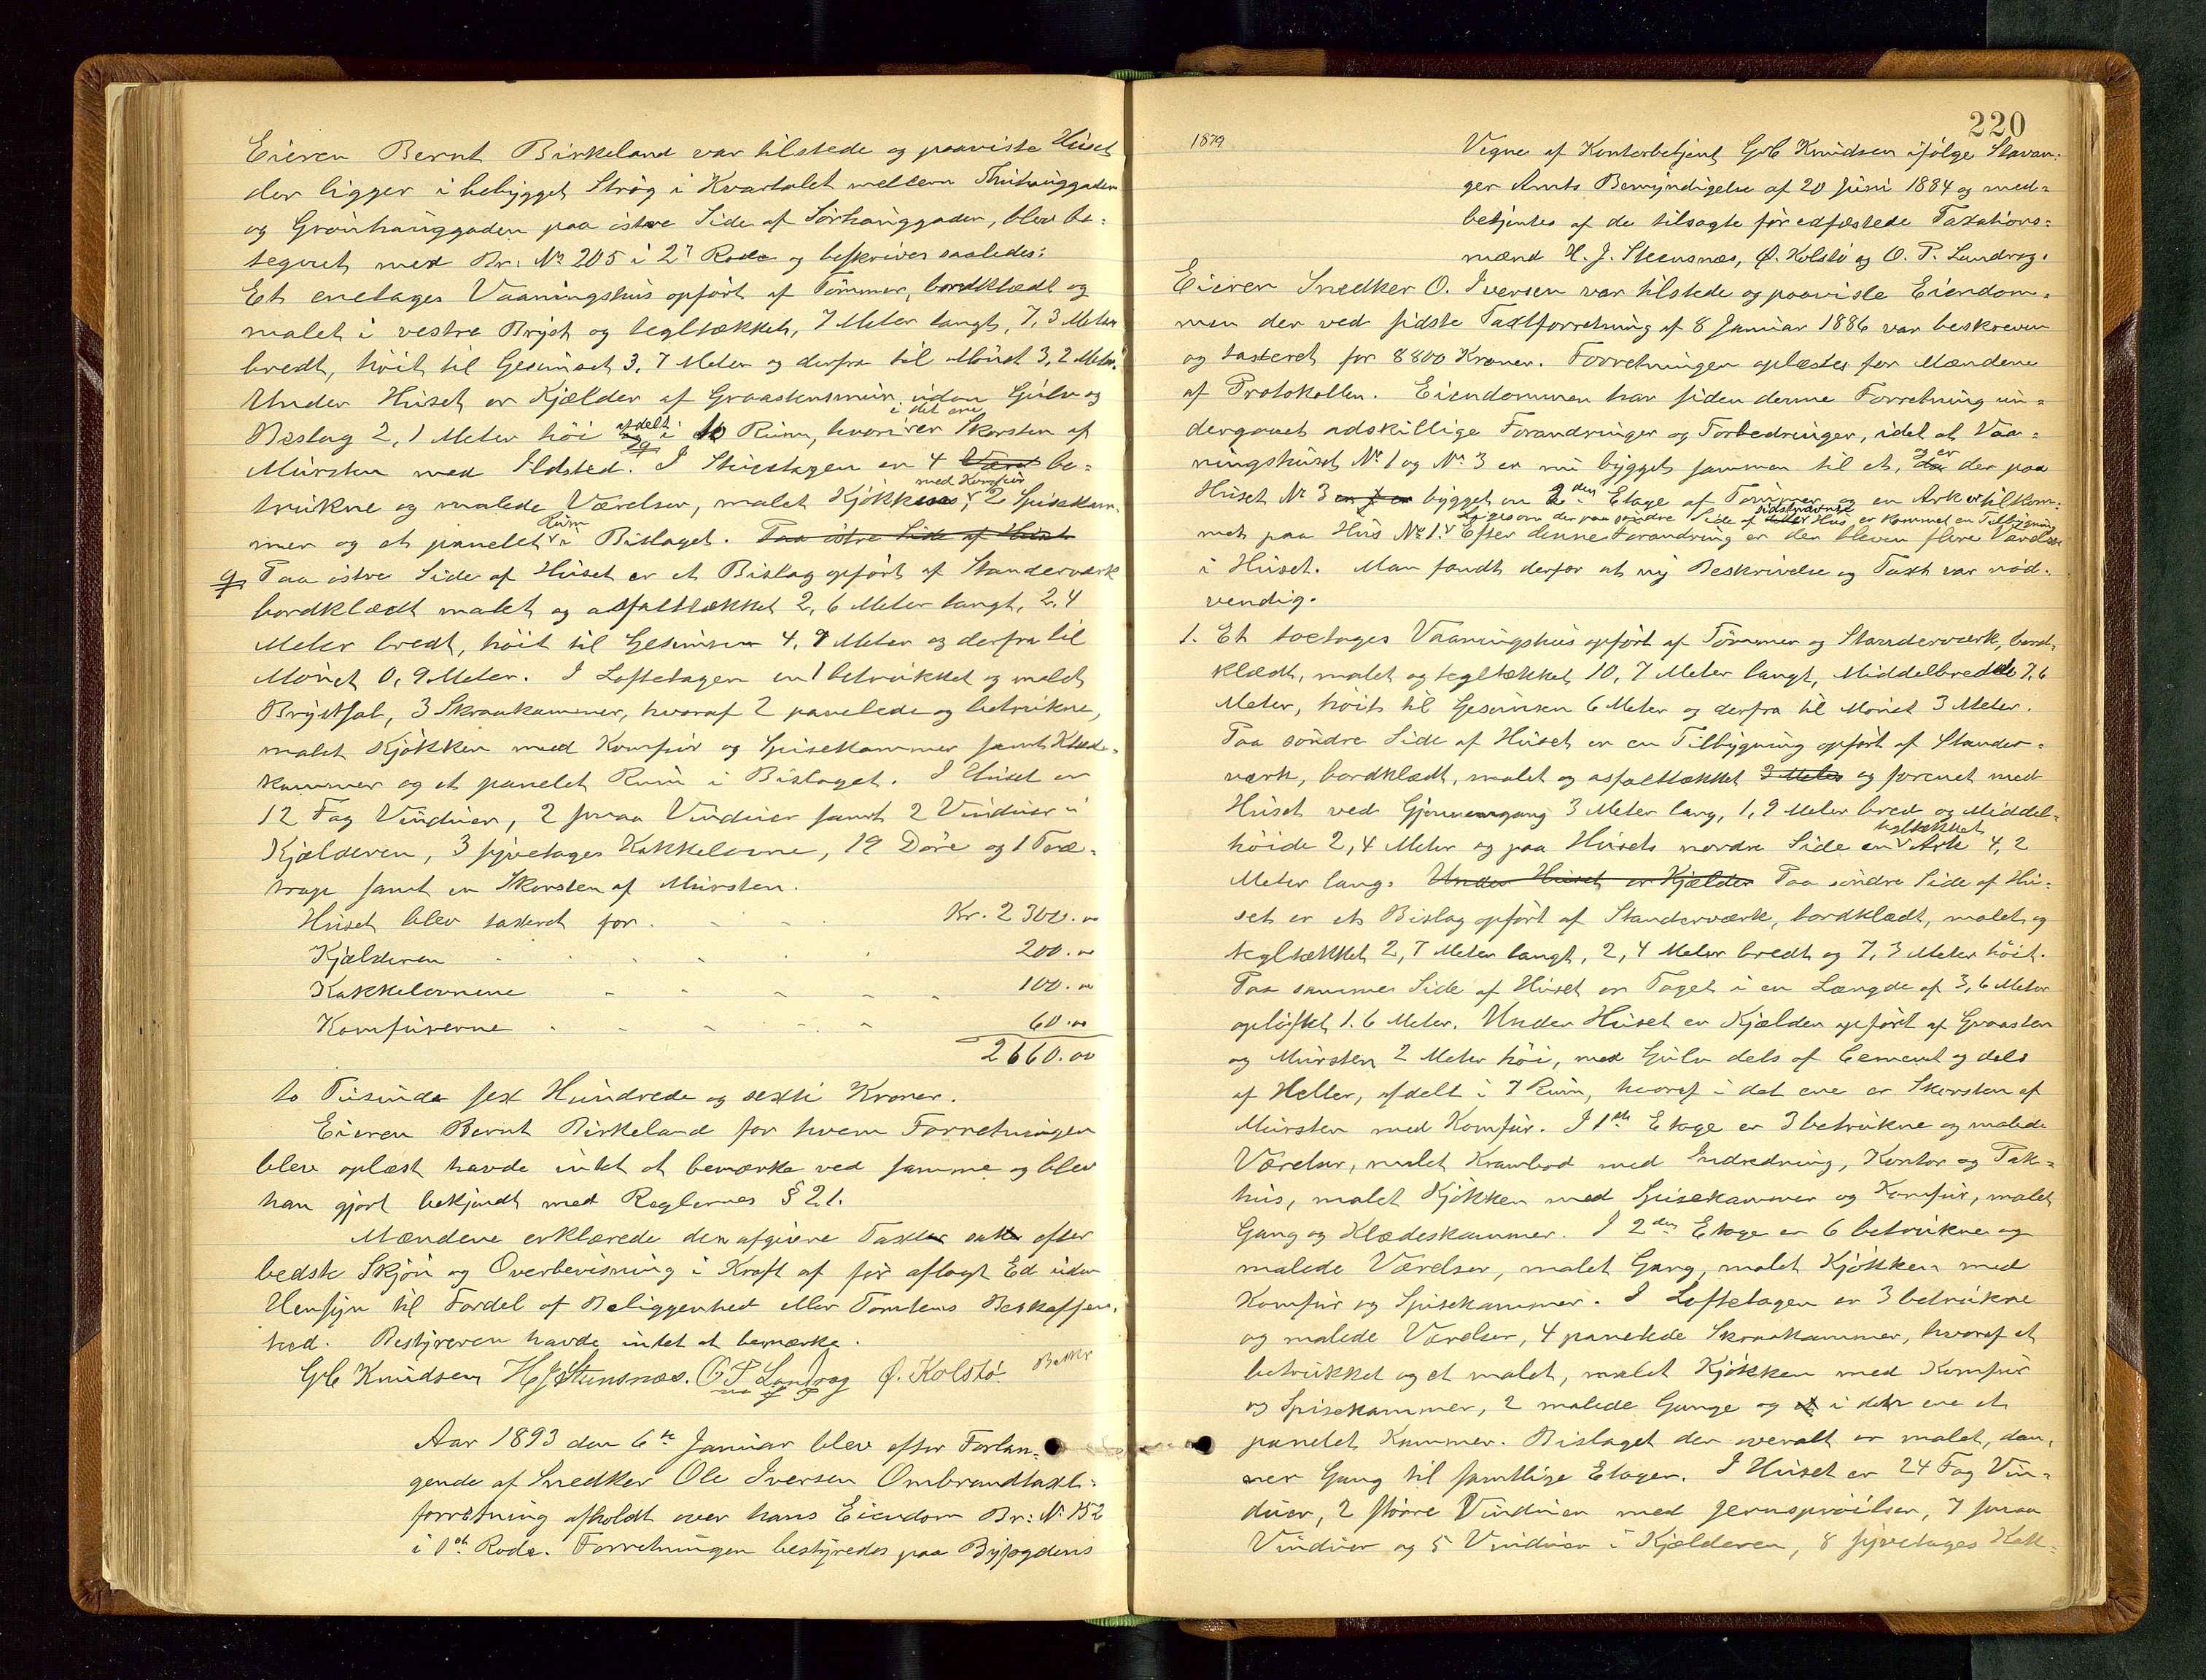 Eieren Bernt Birkeland var tilstede og paaviste Huset
der ligger i bebygget Strøg i Kvartalet mellem Thithauggaden
og Grønhauggaden paa østre Side af Sørhauggaden, blev be-
tegnet med Br. No 205 i 2. Rode og beskrives saaledes:
Et enetages Vaaningshus opført af Tømmer, bordklædt og
malet i vestre Bryst og tegltækket, 7 Meter langt, 7,3 Meter
bredt, høit til Gesimset 3,7 Meter og derfra til Mønet 3,2 Meter.
Under Huset er Kjælder af Graastensmur uden Gulv og
Beslag 2,1 Meter høi afdelt i to Rum, hvori i det ene er Skorsten af
Mursten med Ildsted. I Stuestagen er 4 be-
trukne og malede Værelser, malet Kjøkken med Komfur, 2 Spiskam-
mer og et panelet Rum i Bislaget. Paa østre Side af Huset
Paa østre Side af Huset er et Bislag opført af Standerværk
bordklædt malet og asfalttækket 2,6 Meter langt, 2,4
Meter bredt, høit til Gesimsen 4,9 Meter og derfra til
Mønet 0,9 Meter. I Loftetagen er 1 betrukket og malet
Brystsal, 3 Skraakammer, hvoraf 2 panelede og betrukne,
malet Kjøkken med Komfur og Spisekammer samt Klæde-
kammer og et panelet Rum i Bislaget. I Huset er
12 Fag Vinduer, 2 smaa Vinduer samt 2 Vinduer i
Kjælderen, 3 fyretages Kakkelovne, 19 Døre og 1 Træ-
trappe samt en Skorsten af Mursten.
Huset blev taxeret for Kr. 2300.00
Kjælderen 200.00
Kakkelovnene 100.00
Komfurerne 60.00
2660.00
to Tusinde sex Hundrede og sexti Kroner.
Eieren Bernt Birkeland for hvem Forretningen
blev oplæst havde intet at bemærke ved samme og blev
han gjort bekjendt med Reglernes § 21.
Mændene erklærede den afgivne Taxt efter
bedste Skjøn og Overbevisning i Kraft af før aflagt Ed uden
Hensyn til Fordel af Beliggenhed eller Tomtens Beskaffen-
hed. Bestyreren havde intet at bemærke.
Gb Knudsen H J Steensnæs. O P Landrog Ø. Kolstø.
Aar 1893 den 6te Januar blev efter Forlan-
gende af Snedker Ole Iversen Ombrandtaxt-
forretning afholdt over hans Eiendom Br: No 152
i 1ste Rode. Forretningen bestyredes paa Byfogdens
220
1879
Vegne af Kontorbetjent Gb Knudsen ifølge Stavan-
ger Amts Bemyndigelse af 20 Juni 1884 og med-
betjentes af de tilsagte før edfæstede Taxations-
mænd H. J. Steensnæs, Ø. Kolstø og O. P. Landrog.
Eieren Snedker O. Iversen var tilstede og paaviste Eiendom-
men der ved sidste Taxtforretning af 8 Januar 1886 var beskreven
og taxeret for 8800 Kroner. Forretningen oplæstes for Mændene
af Protokollen. Eiendommen har siden denne Forretning un-
dergaaet adskillige Forandringer og Forbedringer, idet at Vaa-
ningshuset No 1 og No 3 er nu bygget sammen til et, og er der paa
Huset No 3 bygget en 2den Etage af Tømmer og en Ark er tilkom-
ligesom der paa søndre Side af sidstnævnte Hus er kommet en Tilbygning
met paa Hus No 1. Efter denne Forandring er der bleven flere Værelser
i Huset. Man fandt derfor at ny Beskrivelse og Taxt var nød-
vendig.
1. Et toetages Vaaningshus opført af Tømmer og Standerværk, bord-
klædt, malet og tegltækket 10,7 Meter langt, Middelbredde 7,6
Meter, høit til Gesimsen 6 Meter og derfra til Mønet 3 Meter.
Paa søndre Side af Huset er en Tilbygning opført af Stander-
værk, bordklædt, malet og asfalttækket 3 Meter og forenet med
Huset ved Gjennemgang 3 Meter lang, 1,9 Meter bred og Middel-
høide 2,4 Meter og paa Husets nordre Side en tegltækket Ark 4,2
Meter lang. Under Huset er Kjælder Paa søndre Side af Hu-
set er et Bislag opført af Standerværk, bordklædt, malet og
tegltækket 2,7 Meter langt, 2,4 Meter bredt og 7,3 Meter høit.
Paa samme Side af Huset er Taget i en Længde af 3,6 Meter
opløftet 1.6 Meter. Under Huset er Kjælder opført af Graasten
og Mursten 2 Meter høi, med Gulv dels af Cement og dels
af Heller, afdelt i 7 Rum, hvoraf i det ene er Skorsten af
Mursten med Komfur. I 1ste Etage er 3 betrukne og malede
Værelser, malet Krambod med Indredning, Kontor og Pak-
hus, malet Kjøkken med Spisekammer og Komfur, malet
Gang og Klædeskammer. I 2den Etage er 6 betrukne og
malede Værelser, malet Gang, malet Kjøkken med
Komfur og Spisekammer. I Loftetagen er 3 betrukne
og malede Værelser, 4 panelede Skraakammer, hvoraf et
betrukket og et malet, malet Kjøkken med Komfur
og Spisekammer, 2 malede Gange og i den ene et
panelet Kammer. Bislaget der overalt er malet, dan-
ner Gang til samtlige Etager. I Huset er 24 Fag Vin-
duer, 2 større Vinduer med Jernsprøilser, 7 smaa
Vinduer og 5 Vinduer i Kjælderen, 8 fyretages Kak-